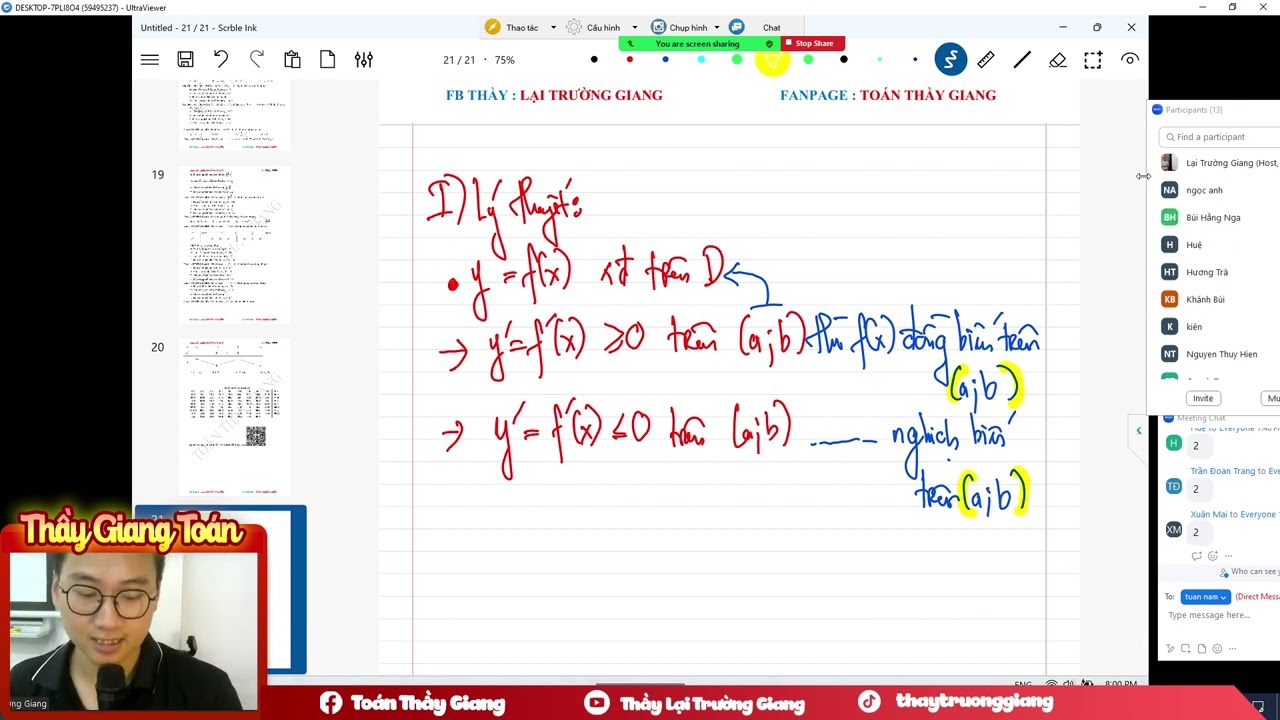 DESKTOP-7PLI8O4 (59495237) - UltraViewer
Untitled - 21 / 21 - Scrble Ink
Thao tác
Cấu hình
Chụp hình
Chat
You are screen sharing
Stop Share
21 / 21 · 75%
FB THẦY : LẠI TRƯỜNG GIANG
FANPAGE : TOÁN THẦY GIANG
19
20
21
I) Lý thuyết:
• y = f(x) xđ trên D
→ y' = f'(x) ≥ 0 trên (a;b) thì f(x) đồng biến trên
(a;b)
→ y' = f'(x) ≤ 0 trên (a;b) nghịch biến
trên (a;b)
Participants (13)
Find a participant
Lại Trường Giang (Host,
NA ngọc anh
BH Bùi Hằng Nga
H Huệ
HT Hương Trà
KB Khánh Bùi
K kiên
NT Nguyen Thuy Hien
Invite
Mu
Meeting Chat
Huệ to Everyone
H 2
Trần Đoan Trang to Eve
TĐ 2
Xuân Mai to Everyone
XM 2
Who can see y
To: tuan nam (Direct Messa
Type message here...
ENG 8:00 PM
Thầy Giang Toán
ng Giang
Toán Thầy Giang
Thầy Lại Trường Giang
thaytruonggiang